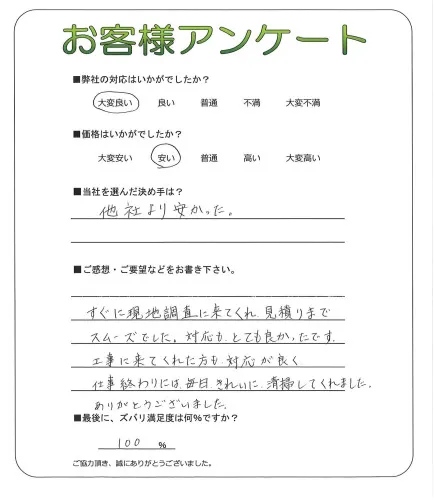 お客様アンケート
■弊社の対応はいかがでしたか？
大変良い 良い 普通 不満 大変不満
■価格はいかがでしたか？
大変安い 安い 普通 高い 大変高い
■当社を選んだ決め手は？
他社より安かった。
■ご感想・ご要望などをお書き下さい。
すぐに現地調査に来てくれ 見積りまで
スムーズでした。対応も とても良かったです。
工事に来てくれた方も 対応が良く
仕事終わりには 毎日 きれいに 清掃してくれました。
ありがとうございました。
■最後に、ズバリ満足度は何%ですか？
100 %
ご協力頂き、誠にありがとうございました。